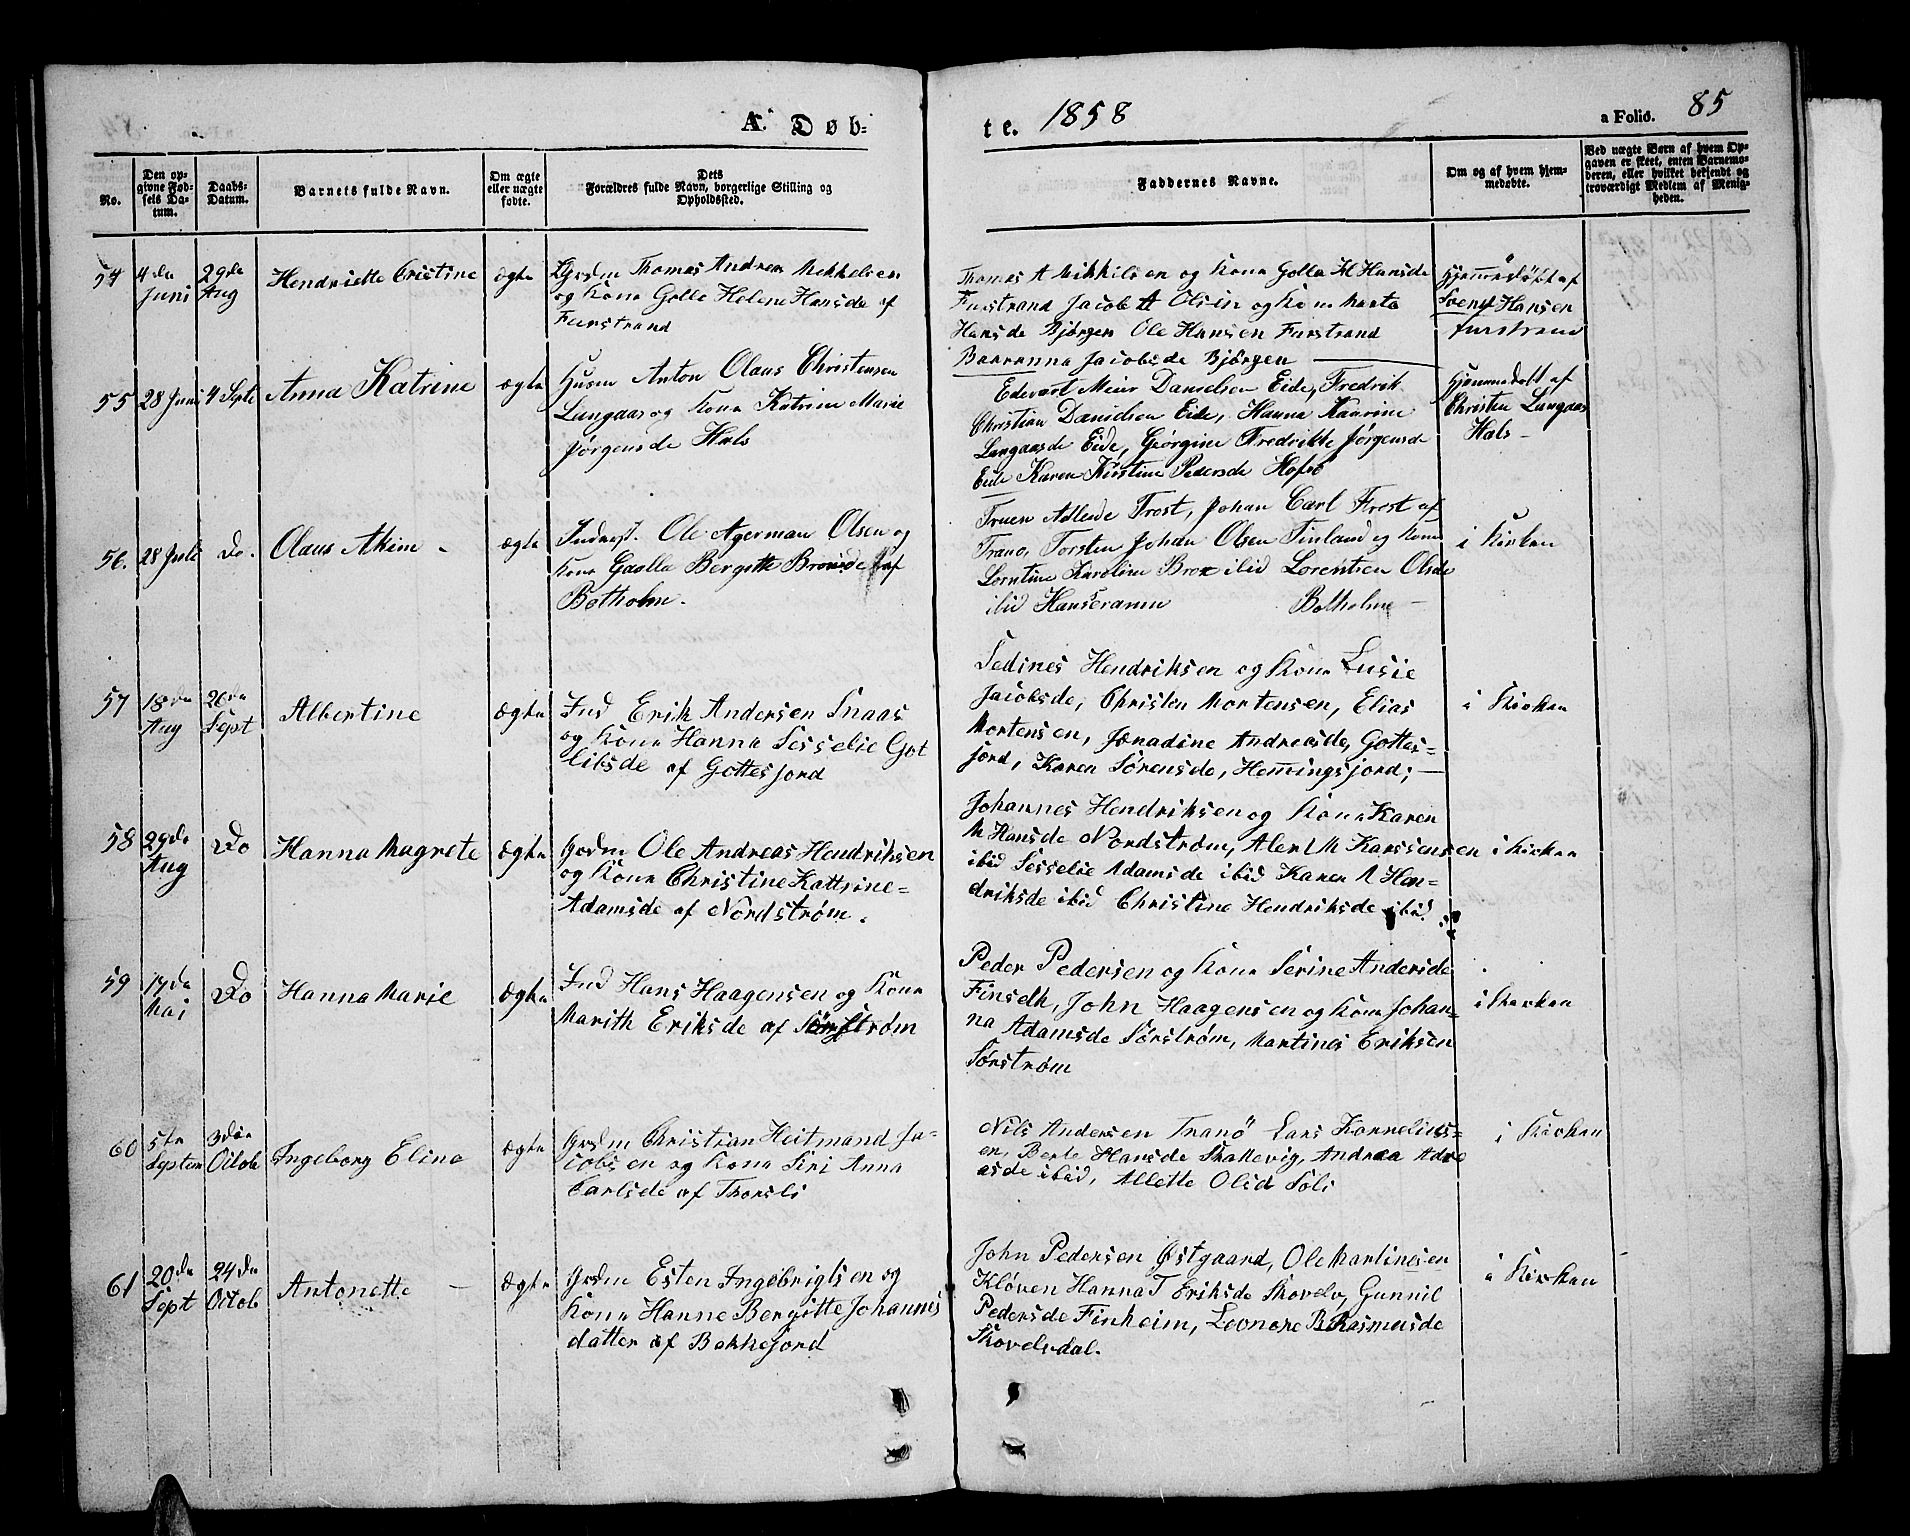 A. Døb-
te. 1858
a Folio. 85
No.
Den opgivne Fødsels Datum.
Daabs-Datum.
Barnets fulde Navn.
Om ægte eller uægte fødte.
Dets Forældres fulde Navn, borgerlige Stilling og Opholdssted.
Faddernes Navne.
Om og af hvem hjemmedøbte.
Ved uægte Børn af hvem Opgaven er skeet, enten Barnemoderen, eller hvilket bekjendt og troværdigt Medlem af Menigheden.
54 4de Juni 29de Aug Hendriette Cristine ægte
Grdm Thomas Andreas Mekkelsen
og Kone Golla Helene Hansde af
Furstrand
Thomas A Mikkilsen og Kone Golla H Hansde
Furstrand Jacob A Olsin og Kone Marta
Hansde Bjørgen Ole Hansen Furstrand
Jacobsde Bjørgen
Hjemmedøbt af
Svend Hansen
furstrand
55 28 Juni 4 Septe Anna Katrine ægte
Husm Anton Olaus Christensen
Lungaas og Kone Katrine Marie
Jørgensde Hals
Edevart Meier Danielsen Eide, Fredrik
Christian Danielsen Eide, Hanna Kaarine
Lungaasde Eide, Georgine Fredrikke Jørgensde
Eide Karen Kirstine Pedersde Hofsø
Hjemmedøbt af
Christen Lungaas
Hals -
56. 28 Juli Do. Olaus Akim - ægte
Inderst. Ole Agerman Olsen og
Kone Gaolla Bergitte af
Botholm.
Fruen Adleide Frost, Johan Carl Frost af
Tranø, Torsten Johan Olsen Finland og Kone
Lorntine Karoline Brox ibid Lorentsen Olsde
ibid Botholme -
i Kirken
57 18de Aug 26de Sept Albertine ægte
Ind Erik Andersen Snaas
og Kone Hanna Sesselie Got
libsde af Gottesjord
Sedines Hendriksen og Kone Lusie
Jacobsde, Christen Mortensen, Elias
Mortensen, Jonadine Andreasde, Gottes=
jord, Karen Sørensde, Hemingsjord; -
i Kirken
58 29de Aug Do Hanna Magrete ægte
Grdm Ole Andreas Hendriksen
og Kone Christine Kattrine=
Adamsde af Nordstrøm.
Johannes Hendriksen og Kone Karen
M Hansde Nordstrøm, M
ibid Sesselie Adamsde ibid Karen A Hen=
driksde ibid Christine Hendriksde ibid.
i Kirken
59 17de Mai Do Hanna Marie ægte
Ind Hans Haagensen og Kone
Marith Eriksde af Sørstrøm
Peder Pedersen og Kone Serine Andersde
John Haagensen og Kone Johan=
na Adamsde Sørstrøm, Martines Eriksen
Sørstrøm
i Kirken
60 5te Septem 3die Octob Ingeborg Elina ægte
Grdm Christian Heitmand Ja=
cobsen og Kone Siri Anna
Carlsde af Thorsli
Nils Andersen Tranö Lars Kornelius=
en, Berte Hansde Skattevig, Andrea
ibid, Allette Olsd Soli
i Kirken
61 20de Sept 24de Octob Antonette - ægte
Grdm Esten Ingebrigtsen og
Kone Hanne Bergitte Johannes
datter af Bekkejord
John Pedersen Østgaard, Ole Martinesen
Kløven Hanna T Eriksde Skovelv, Gunnil
Pedersde Finheim, Leonore B. Rasmusde
Skovelvdal.
i Kirken